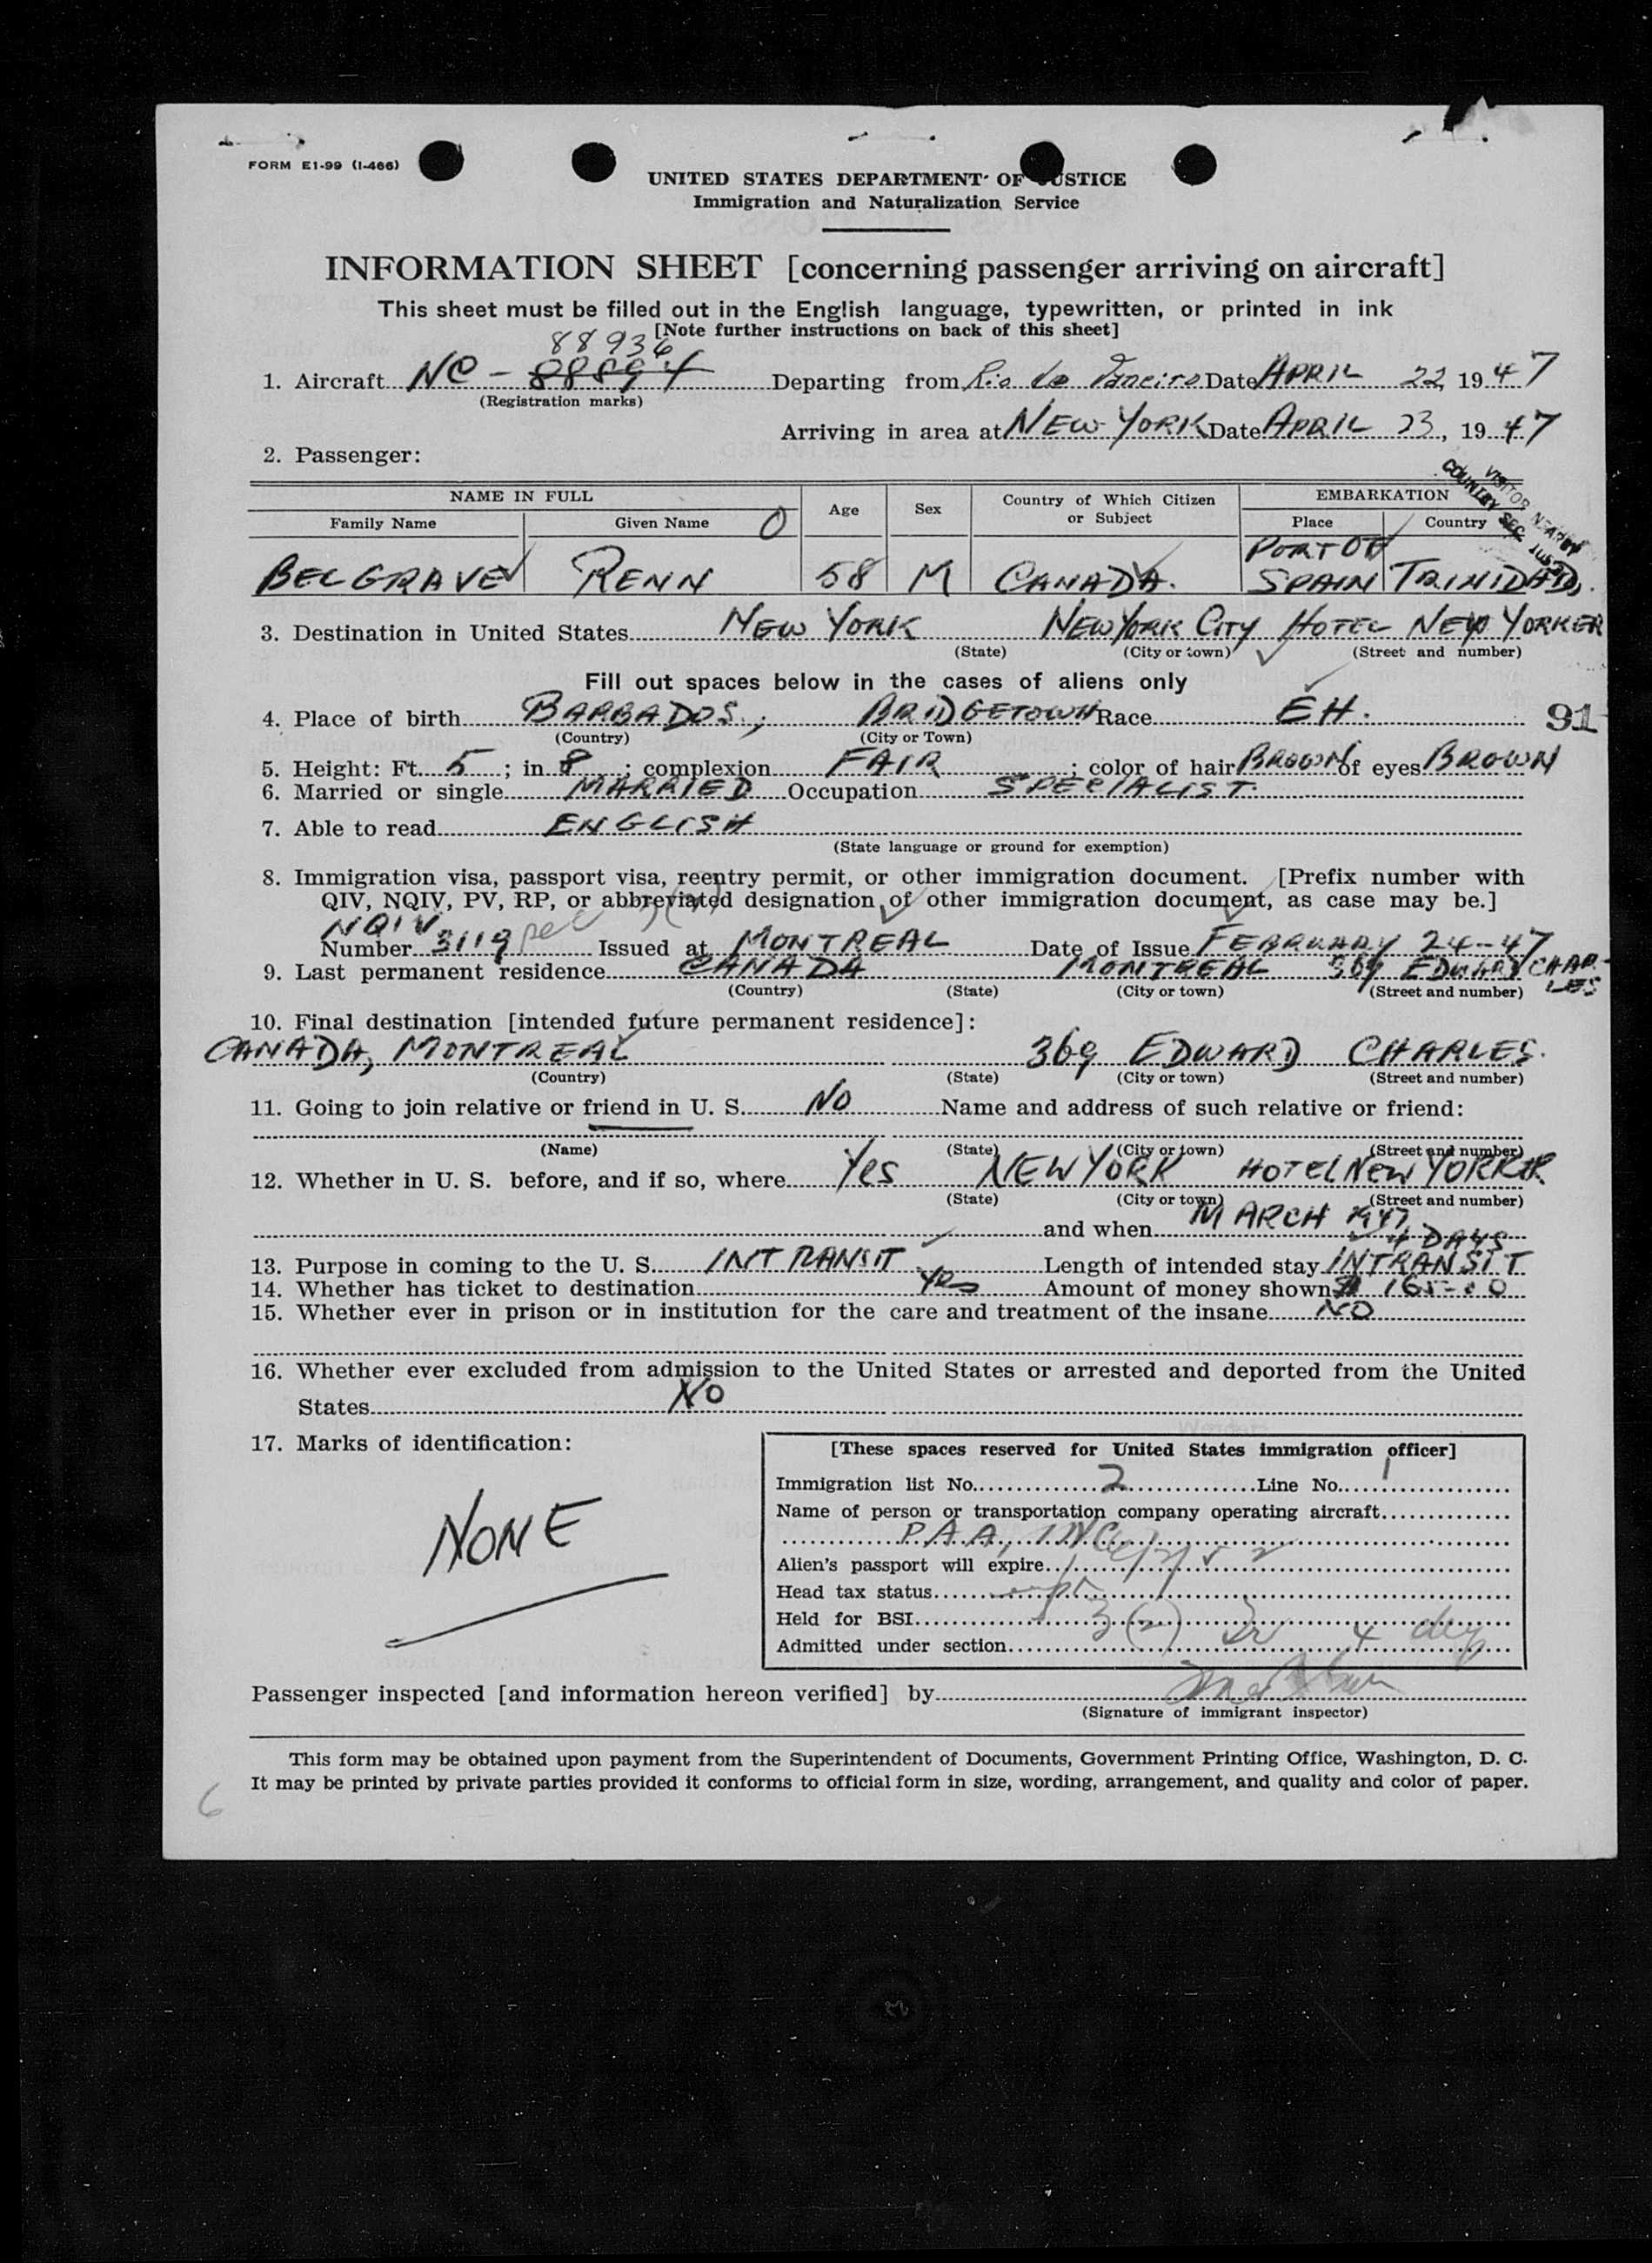 FORM E1-99 (I-466)
UNITED STATES DEPARTMENT OF JUSTICE
Immigration and Naturalization Service
INFORMATION SHEET [concerning passenger arriving on aircraft]
This sheet must be filled out in the English language, typewritten, or printed in ink
[Note further instructions on back of this sheet]
88936
1. Aircraft NC - 88894 Departing from Rio de Janeiro Date APRIL 22, 1947
(Registration marks)
Arriving in area at NEW YORK Date APRIL 23, 1947
2. Passenger:
VISITOR NEARBY
COUNTRY SEC
NAME IN FULL Age Sex Country of Which Citizen or Subject EMBARKATION
Family Name Given Name O Place Country
BELGRAVE RENN 58 M CANADA. PORT OF SPAIN TRINIDAD.
3. Destination in United States NEW YORK NEW YORK CITY HOTEL NEW YORKER
(State) (City or town) (Street and number)
Fill out spaces below in the cases of aliens only
4. Place of birth BARBADOS, BRIDGETOWN Race EH. 91
(Country) (City or Town)
5. Height: Ft. 5 ; in 8 ; complexion FAIR ; color of hair BROWN of eyes BROWN
6. Married or single MARRIED Occupation SPECIALIST.
7. Able to read ENGLISH
(State language or ground for exemption)
8. Immigration visa, passport visa, reentry permit, or other immigration document. [Prefix number with
QIV, NQIV, PV, RP, or abbreviated designation of other immigration document, as case may be.]
NQIV
Number 3119 sec 3(2) Issued at MONTREAL Date of Issue FEBRUARY 24-47
9. Last permanent residence CANADA MONTREAL 369 EDWARD CHARLES
(Country) (State) (City or town) (Street and number)
10. Final destination [intended future permanent residence]:
CANADA, MONTREAL 369 EDWARD CHARLES.
(Country) (State) (City or town) (Street and number)
11. Going to join relative or friend in U. S. NO Name and address of such relative or friend:
(Name) (State) (City or town) (Street and number)
12. Whether in U. S. before, and if so, where Yes NEW YORK HOTEL NEW YORKER
(State) (City or town) (Street and number)
and when MARCH 1947
4 DAYS
13. Purpose in coming to the U. S. INTRANSIT Length of intended stay INTRANSIT
14. Whether has ticket to destination Yes Amount of money shown $ 165-00
15. Whether ever in prison or in institution for the care and treatment of the insane NO
16. Whether ever excluded from admission to the United States or arrested and deported from the United
States NO
17. Marks of identification:
NONE
[These spaces reserved for United States immigration officer]
Immigration list No. 2 Line No. 1
Name of person or transportation company operating aircraft
P.A.A., INC
Alien's passport will expire
Head tax status
Held for BSI
Admitted under section 3(2) 4 day
Passenger inspected [and information hereon verified] by
(Signature of immigrant inspector)
This form may be obtained upon payment from the Superintendent of Documents, Government Printing Office, Washington, D. C.
It may be printed by private parties provided it conforms to official form in size, wording, arrangement, and quality and color of paper.
6